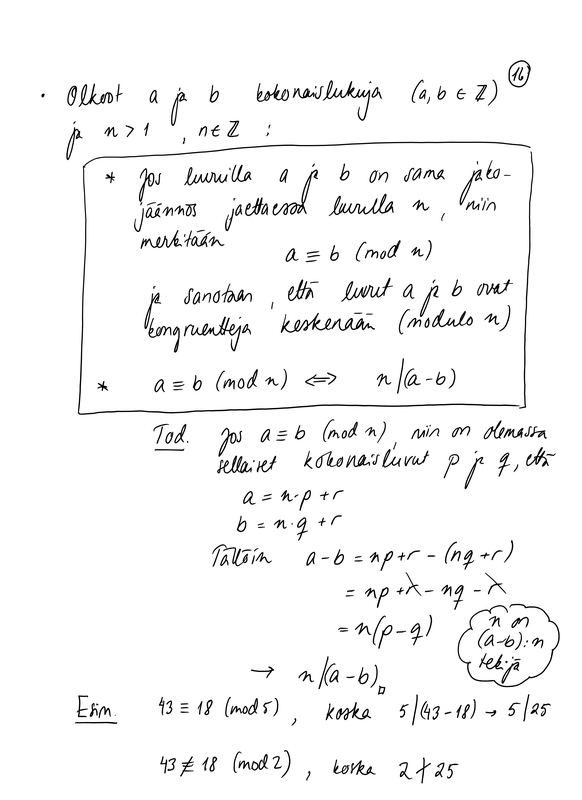 16
• Olkoot a ja b kokonaislukuja (a, b ∈ ℤ)
ja n > 1 , n ∈ ℤ :
* Jos luvuilla a ja b on sama jako-
jäännös jaettaessa luvulla n, niin
merkitään
a ≡ b (mod n)
ja sanotaan, että luvut a ja b ovat
kongruentteja keskenään (modulo n)
* a ≡ b (mod n) ⇔ n|(a-b)
Tod. Jos a ≡ b (mod n), niin on olemassa
sellaiset kokonaisluvut p ja q, että
a = n·p + r
b = n·q + r
Tällöin a-b = np+r - (nq+r)
= np + r - nq - r
= n(p-q)
n on
(a-b):n
tekijä
→ n|(a-b) □
Esim. 43 ≡ 18 (mod 5), koska 5|(43-18) → 5|25
43 ≢ 18 (mod 2), koska 2∤25